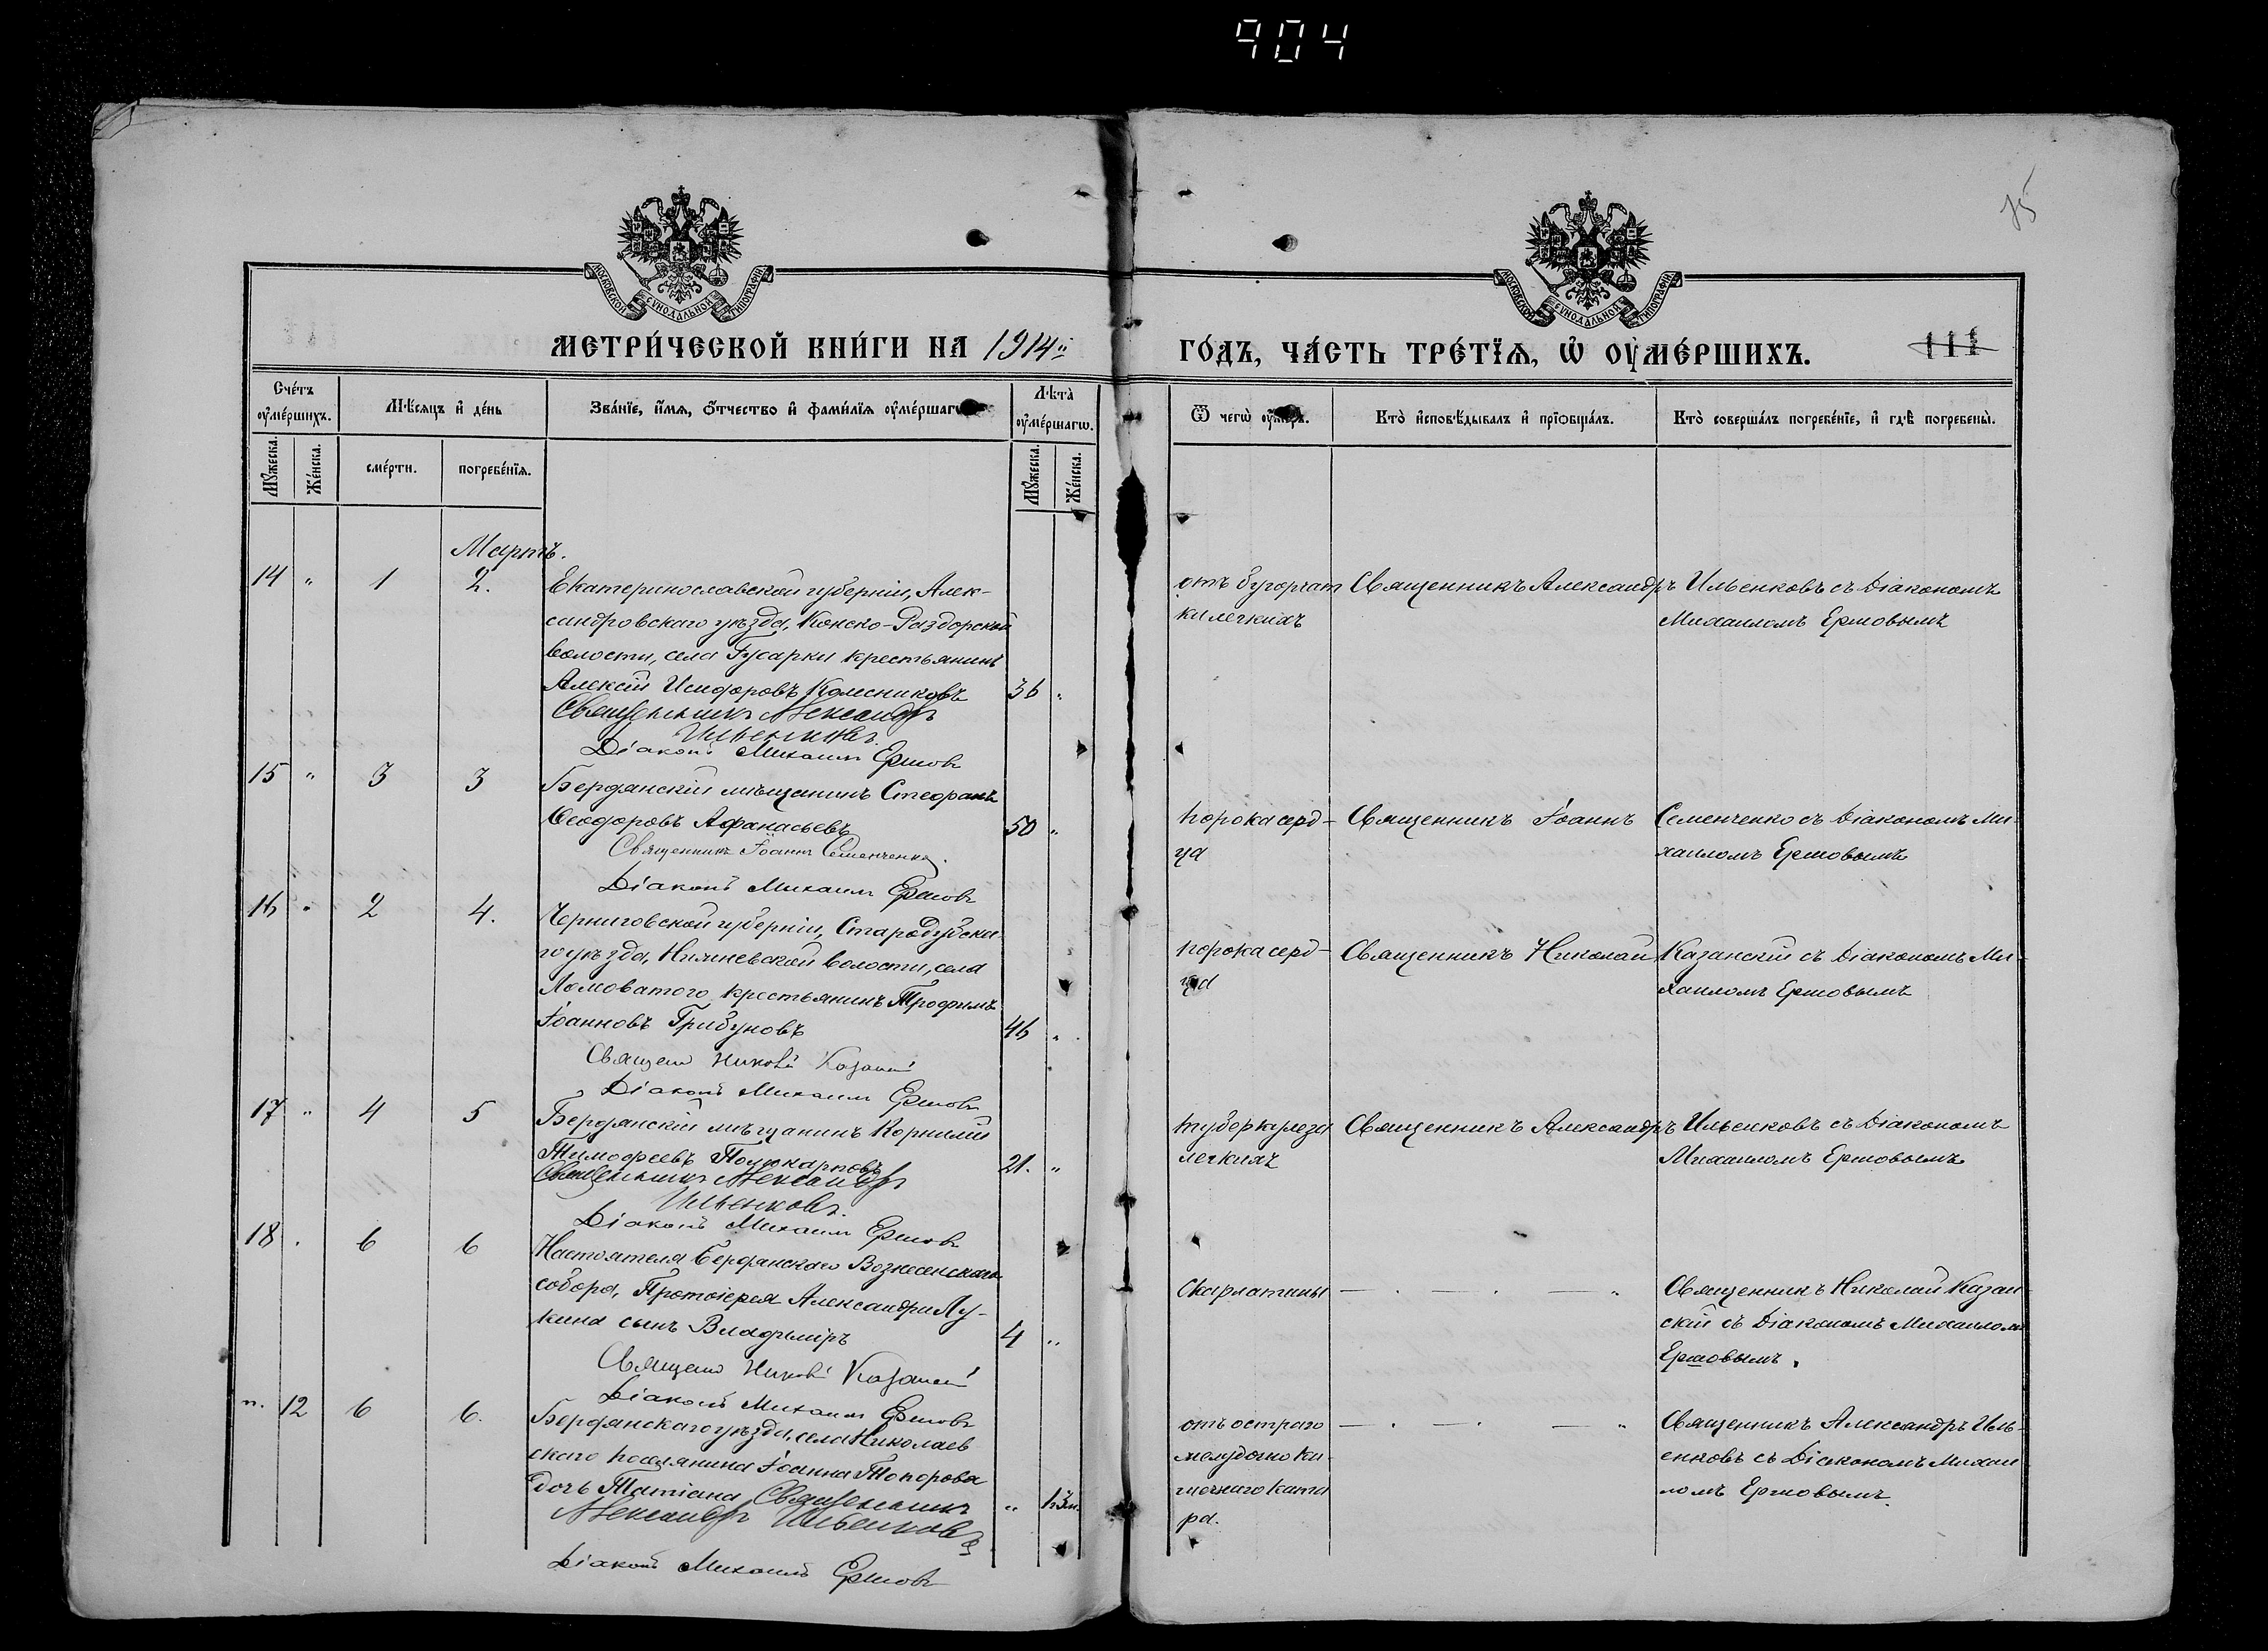 904
75
МОСКОВСКОЙ СУНОДАЛЬНОЙ ТИПОГРАФІИ
МОСКОВСКОЙ СУНОДАЛЬНОЙ ТИПОГРАФІИ
МЕТРИ́ЧЕСКОЙ КНИ́ГИ НА 1914
ГО́ДЪ, ЧА́СТЬ ТРЕ́ТЇѦ, Ѽ ОУМЕ́РШИХЪ.
111
Сче́тъ оумє́ршихъ.
Мѣ́сяцъ и де́нь
Зва́нїе, и́мя, о́тчество и фами́лїя оуме́ршагѡ
Лѣта̀ оуме́ршагѡ.
Ѿ чегѡ̀ оу́меръ.
Кто̀ исповѣ́дывалъ и прїобща́лъ.
Кто̀ соверша́лъ погребе́нїе, и гдѣ̀ погребены̀.
Му́жеска.
Же́нска.
сме́рти.
погребе́нїя.
Му́жеска.
Же́нска.
Мартъ.
14 " 1 2.
Екатеринославской губерніи, Алек-
сандровскаго уѣзда, Конско-Раздорской
волости, села Гусарки крестьянинъ
Алексій Исидоровъ Колесниковъ 36 "
Священникъ Александръ
Ильенковъ.
Діаконъ Михаилъ Ершовъ
отъ бугорчат
ки легкихъ
Священникъ Александръ Ильенковъ съ Діакономъ
Михаиломъ Ершовымъ
15 " 3 3
Бердянскій мѣщанинъ Стефанъ
Ѳеодоровъ Афанасьевъ 50 "
Священникъ Іоаннъ Семенченко.
Діаконъ Михаилъ Ершовъ
порока серд-
ца
Священникъ Іоаннъ Семенченко съ Діакономъ Ми-
хаиломъ Ершовымъ
16 " 2 4.
Черниговской губерніи, Стародубска-
го уѣзда, села
Ломоватого, крестьянинъ Трофимъ
Іоанновъ Грибуновъ 46 "
Николай Казанскій
Діаконъ Михаилъ Ершовъ
порока серд-
ца
Священникъ Николай Казанскій съ Діакономъ Ми-
хаиломъ Ершовымъ
17 " 4 5
Бердянскій мѣщанинъ Корнилій
Тимофеевъ Поликарповъ 21. "
Священникъ Александръ
Ильенковъ.
Діаконъ Михаилъ Ершовъ
туберкулеза
легкихъ
Священникъ Александръ Ильенковъ съ Діакономъ
Михаиломъ Ершовымъ
18 . 6 6
Настоятеля Бердянскаго Вознесенскаго
собора, Протоіерея Александра Лу-
кина сынъ Владиміръ 4 "
Николай Казанскій
Діаконъ Михаилъ Ершовъ
скарлатины
Священникъ Николай Казан
скій съ Діакономъ Михаиломъ
Ершовымъ.
" 12 6 6.
Бердянскаго уѣзда, села Николаев
скаго поселянина Іоанна Топорова
дочь Татіана Священникъ "
Александръ Ильенковъ
Діаконъ Михаилъ Ершовъ
отъ остраго
желудочно ки-
шечнаго ката
ра.
Священникъ Александръ Иль-
енковъ съ Діакономъ Михаи
ломъ Ершовымъ.